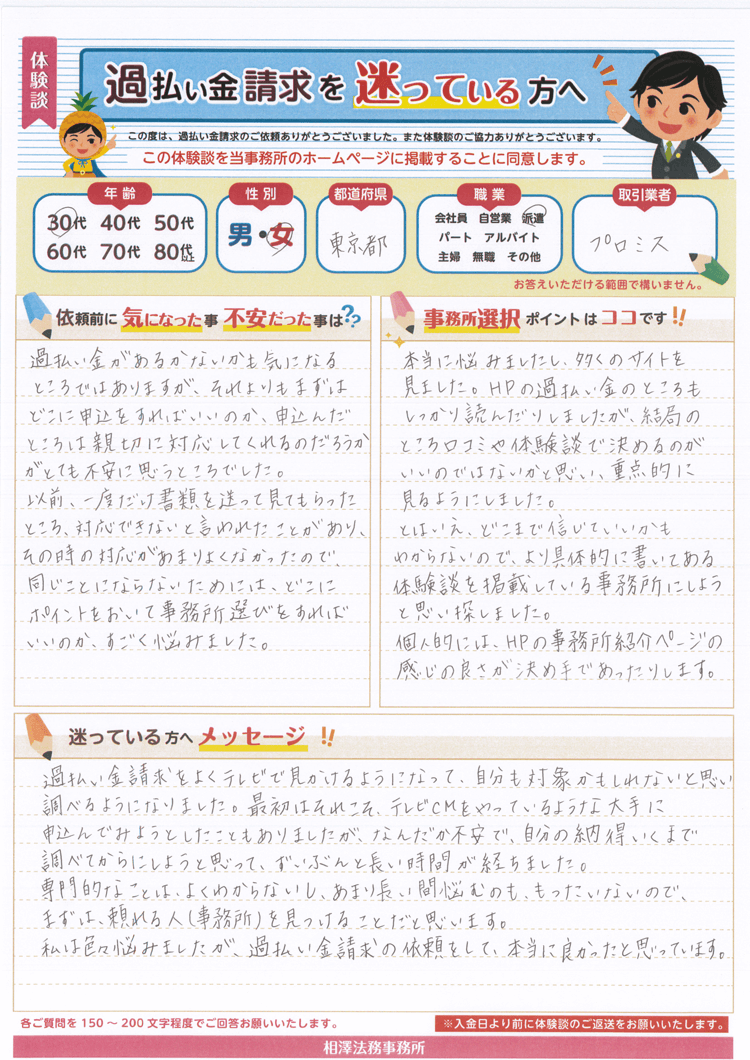 体験談
過払い金請求を迷っている方へ
この度は、過払い金請求のご依頼ありがとうございました。また体験談のご協力ありがとうございます。
この体験談を当事務所のホームページに掲載することに同意します。
年齢
30代 40代 50代
60代 70代 80代以上
性別
男・女
都道府県
東京都
職業
会社員 自営業 派遣
パート アルバイト
主婦 無職 その他
取引業者
プロミス
お答えいただける範囲で構いません。
依頼前に気になった事 不安だった事は??
過払い金があるかないかも気になる
ところではありますが、それよりもまずは
どこに申込をすればいいのか、申込んだ
ところは親切に対応してくれるのだろうか
がとても不安に思うところでした。
以前、一度だけ書類を送って見てもらった
ところ、対応できないと言われたことがあり、
その時の対応があまりよくなかったので、
同じことにならないためには、どこに
ポイントをおいて事務所選びをすれば
いいのか、すごく悩みました。
事務所選択 ポイントはココです!!
本当に悩みましたし、多くのサイトを
見ました。HPの過払い金のところも
しっかり読んだりしましたが、結局の
ところ口コミや体験談で決めるのが
いいのではないかと思い、重点的に
見るようにしました。
とはいえ、どこまで信じていいかも
わからないので、より具体的に書いてある
体験談を掲載している事務所にしよう
と思い探しました。
個人的には、HPの事務所紹介ページの
感じの良さが決め手であったりします。
迷っている方へメッセージ!!
過払い金請求をよくテレビで見かけるようになって、自分も対象かもしれないと思い
調べるようになりました。最初はそれこそ、テレビCMをやっているような大手に
申込んでみようとしたこともありましたが、なんだか不安で、自分の納得いくまで
調べてからにしようと思って、ずいぶんと長い時間が経ちました。
専門的なことは、よくわからないし、あまり長い間悩むのも、もったいないので、
まずは、頼れる人(事務所)を見つけることだと思います。
私は色々悩みましたが、過払い金請求の依頼をして、本当に良かったと思っています。
各ご質問を150～200文字程度でご回答お願いいたします。
※入金日より前に体験談のご返送をお願いいたします。
相澤法務事務所